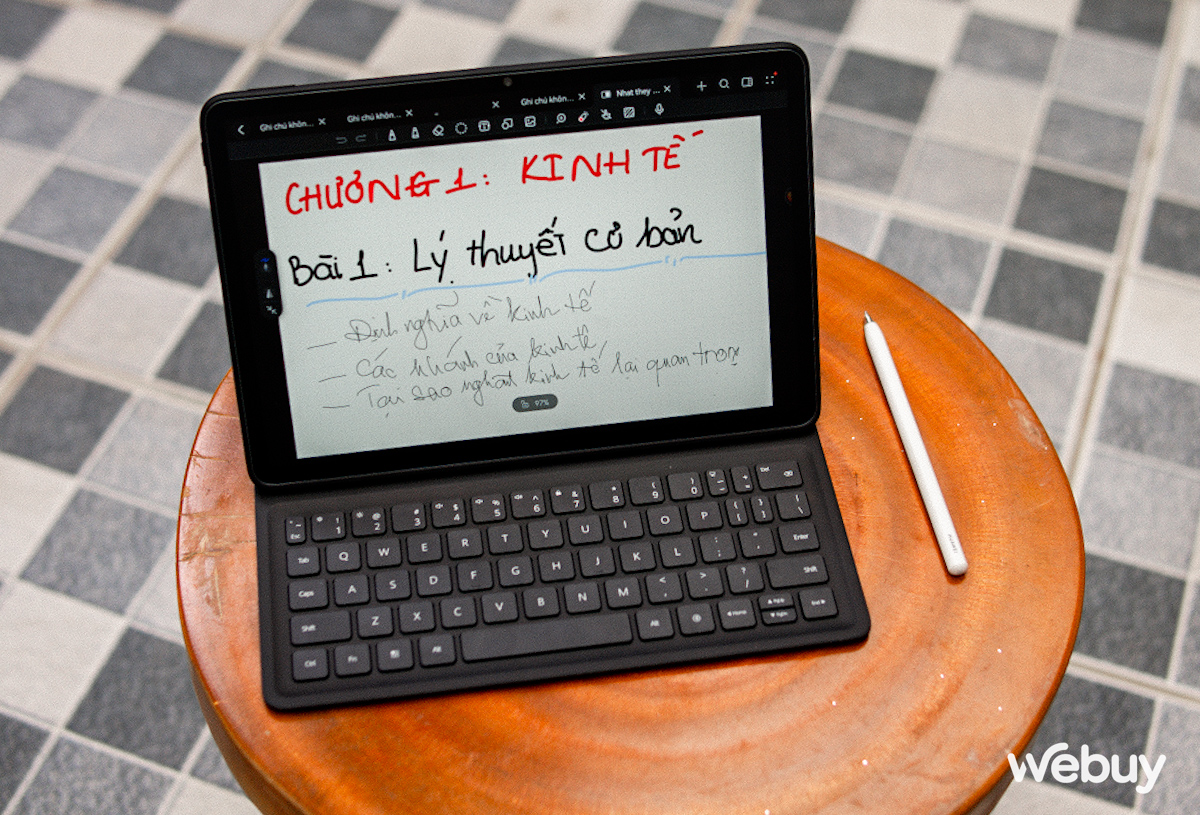 Ghi chú khôn... Ghi chú khôn... Ghi chú khôn... Nhat they ...
CHƯƠNG 1: KINH TẾ
Bài 1: Lý thuyết cơ bản
— Định nghĩa về kinh tế
— Các nhánh của kinh tế
— Tại sao nghành kinh tế lại quan trọng
97%
Esc ! 1 @ 2 # 3 $ 4 % 5 ^ 6 & 7 * 8 ( 9 ) 0 _ - + = Del
Tab Q W E R T Y U I O P { [ } ] | \
Caps A S D F G H J K L : ; " ' Enter
Shift Z X C V B N M < , > . ? / Shift
Ctrl Fn Alt Alt Home PgUp PgDn End
HUAWEI
webuy